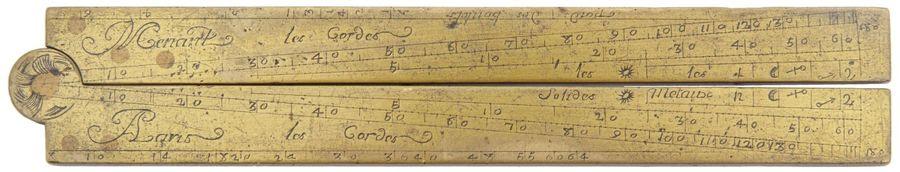 Des Boulets
Menant les Cordes 30 40 50 60 70 80 90 100 110 120 130 180
10 20 5 10 20 30 40 50 60
les les
10 20 5 10 Solides Metaux
30 40 20 30 40 50 60
Paris les Cordes 50 60 70 80 90 100 110 120 130 180
10 14 20 24 30 36 40 55 60 64